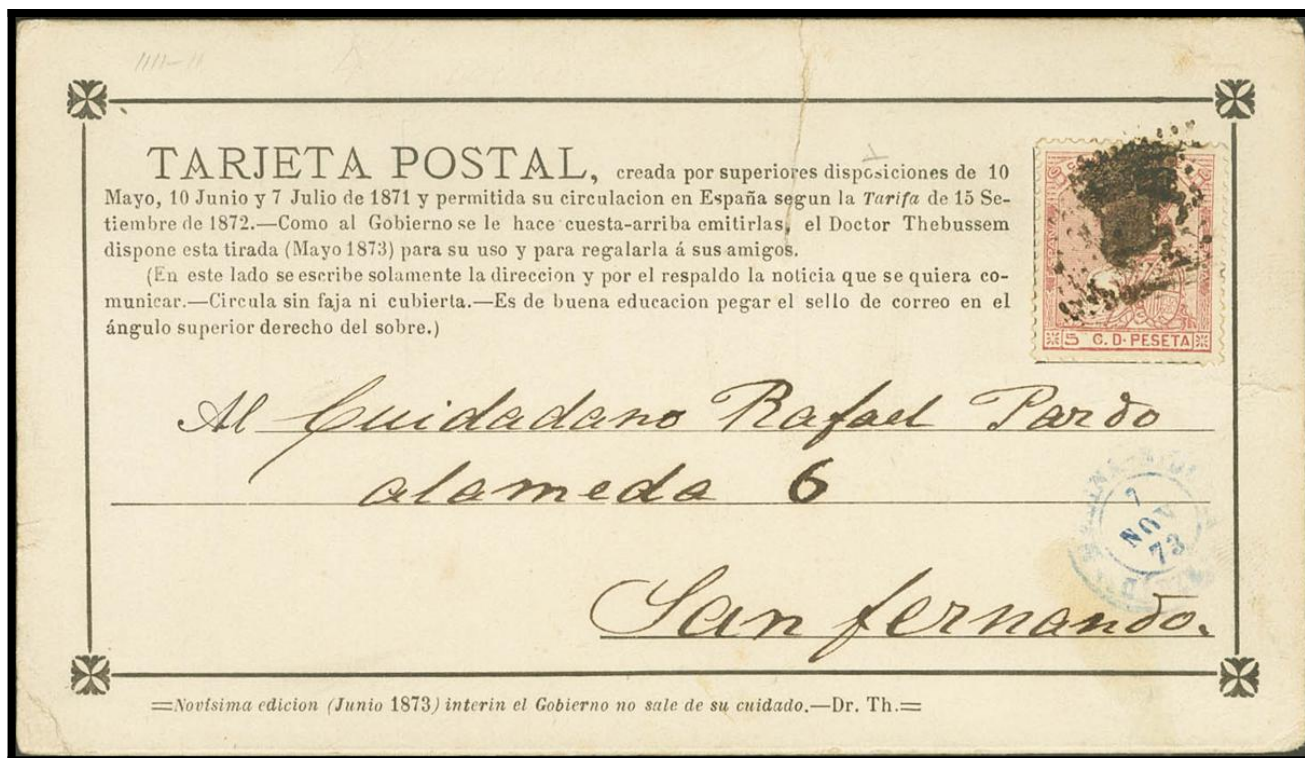 TARJETA POSTAL, creada por superiores disposiciones de 10
Mayo, 10 Junio y 7 Julio de 1871 y permitida su circulacion en España segun la Tarifa de 15 Se-
tiembre de 1872.—Como al Gobierno se le hace cuesta-arriba emitirlas, el Doctor Thebussem
dispone esta tirada (Mayo 1873) para su uso y para regalarla á sus amigos.
(En este lado se escribe solamente la direccion y por el respaldo la noticia que se quiera co-
municar.—Circula sin faja ni cubierta.—Es de buena educacion pegar el sello de correo en el
ángulo superior derecho del sobre.)
5 C. D. PESETA
Al Cuidadano Rafael Pardo
alameda 6
7
NOV
73
San fernando.
=Novísima edicion (Junio 1873) interin el Gobierno no sale de su cuidado.—Dr. Th.=